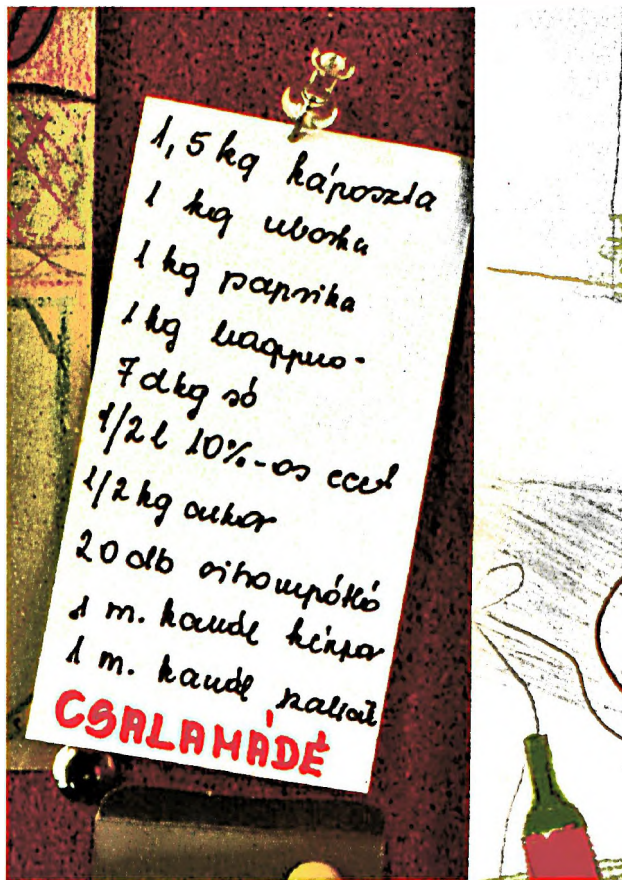 1,5 kg káposzta
1 kg uborka
1 kg paprika
1 kg hagyma
7 dkg só
1/2 l 10%-os ecet
1/2 kg cukor
20 db citrompótló
1 m. kanál kénpor
1 m. kanál szalicil
CSALAMÁDÉ